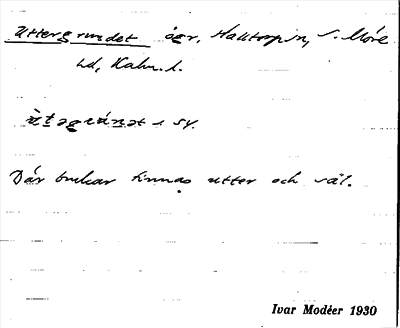 Uttergrundet ögr, Halltorp sn, S. Möre
hd, Kalm. l.
i sy.
Där brukar finnas utter och säl.
Ivar Modéer 1930